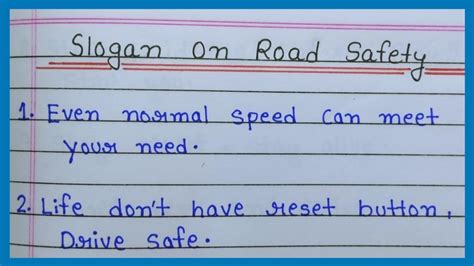 Slogan On Road Safety
1. Even normal speed can meet
your need.
2. Life don't have reset button,
Drive safe.